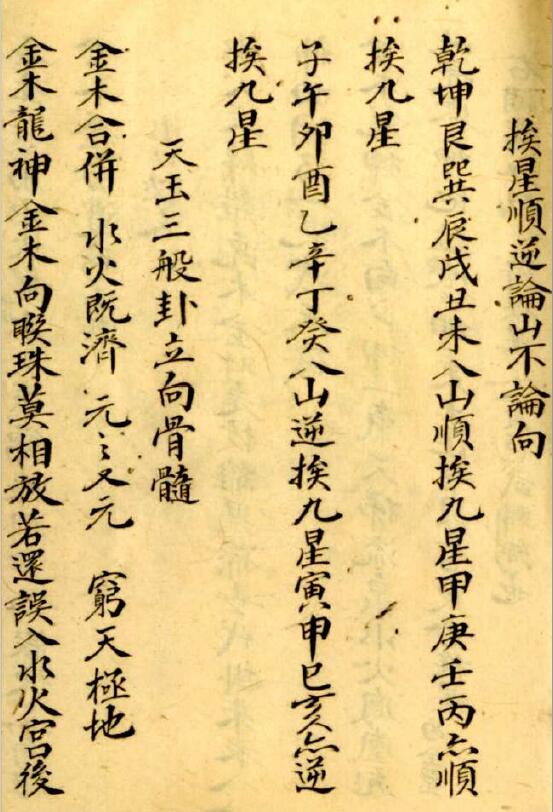 挨星順逆論山不論向
乾坤艮巽辰戌丑未八山順挨九星甲庚壬丙亦順
挨九星
子午卯酉乙辛丁癸八山逆挨九星寅申巳亥亦逆
挨九星
天玉三般卦立向骨髓
金木合併 水火既濟 元〻又元 窮天極地
金木龍神金木向聮珠莫相放若還誤入水火宮後